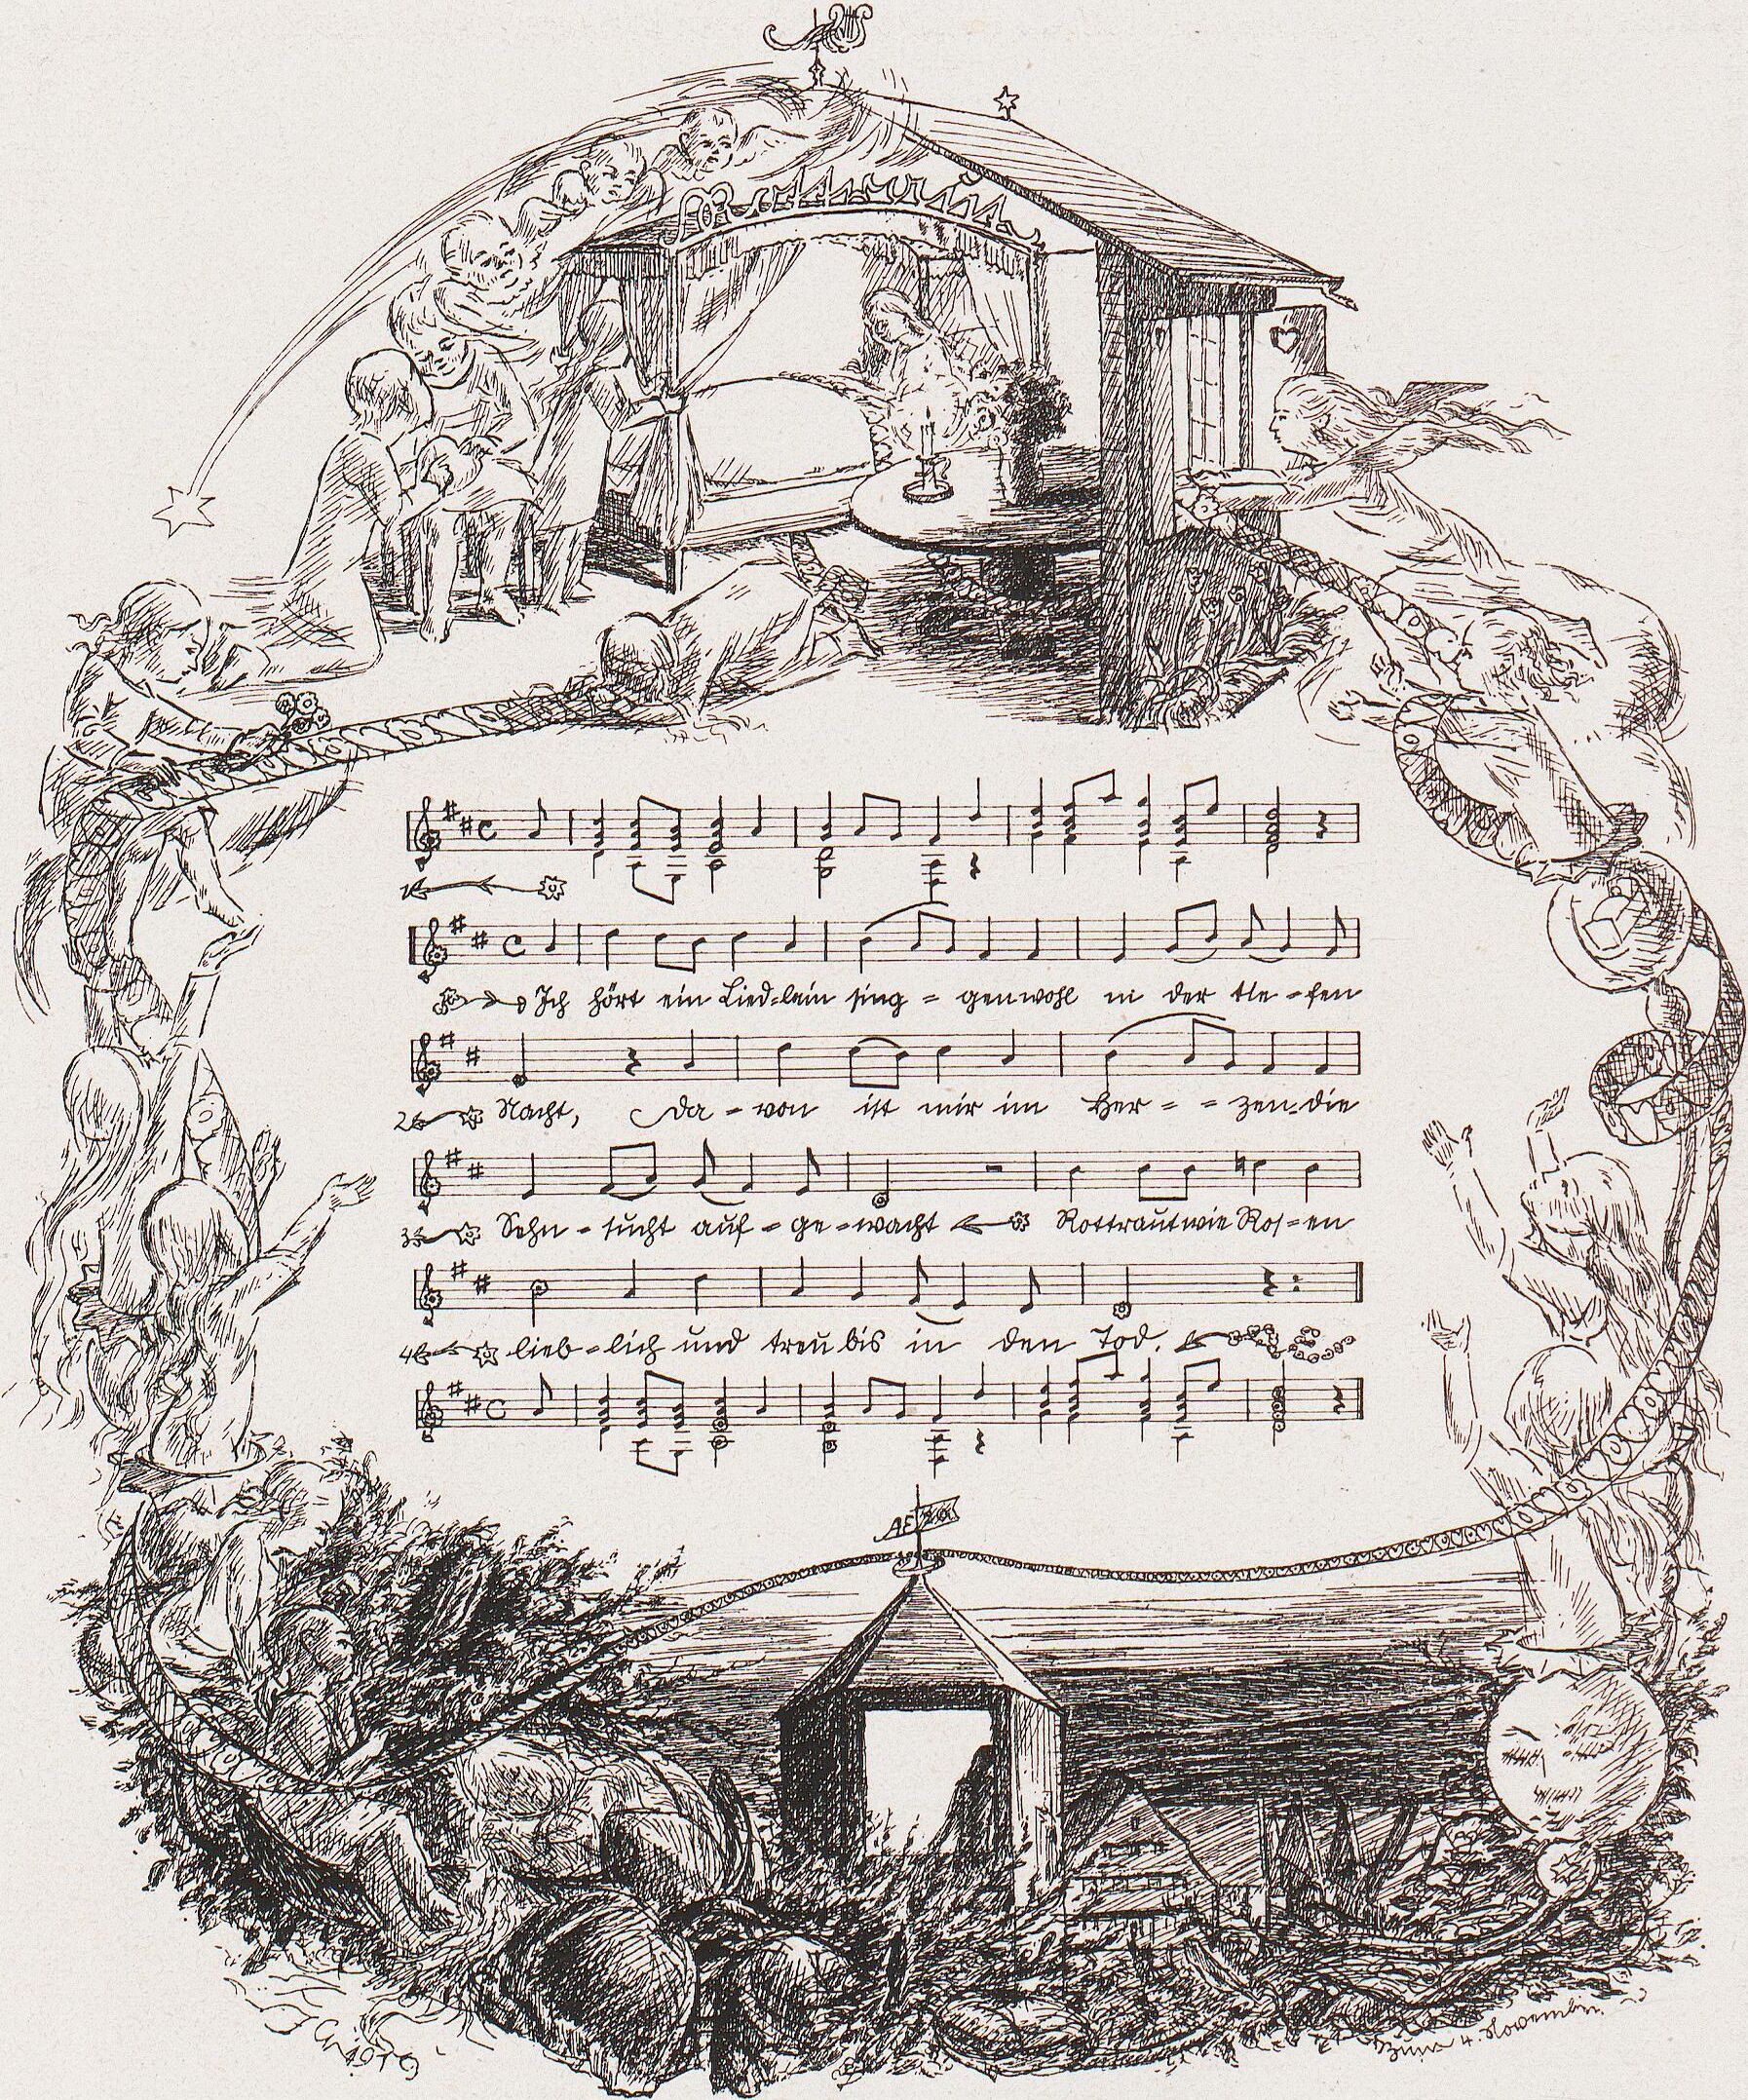 Ich hört ein Lied=lein sing = gen wohl in der tie=fen
2 Nacht, Da = von ist mir im Her = = zen die
3 Sehn = sucht auf = ge = wacht Rottraut wie Ros=en
4 lieb = lich und treu bis in den Tod.
AF
4. November